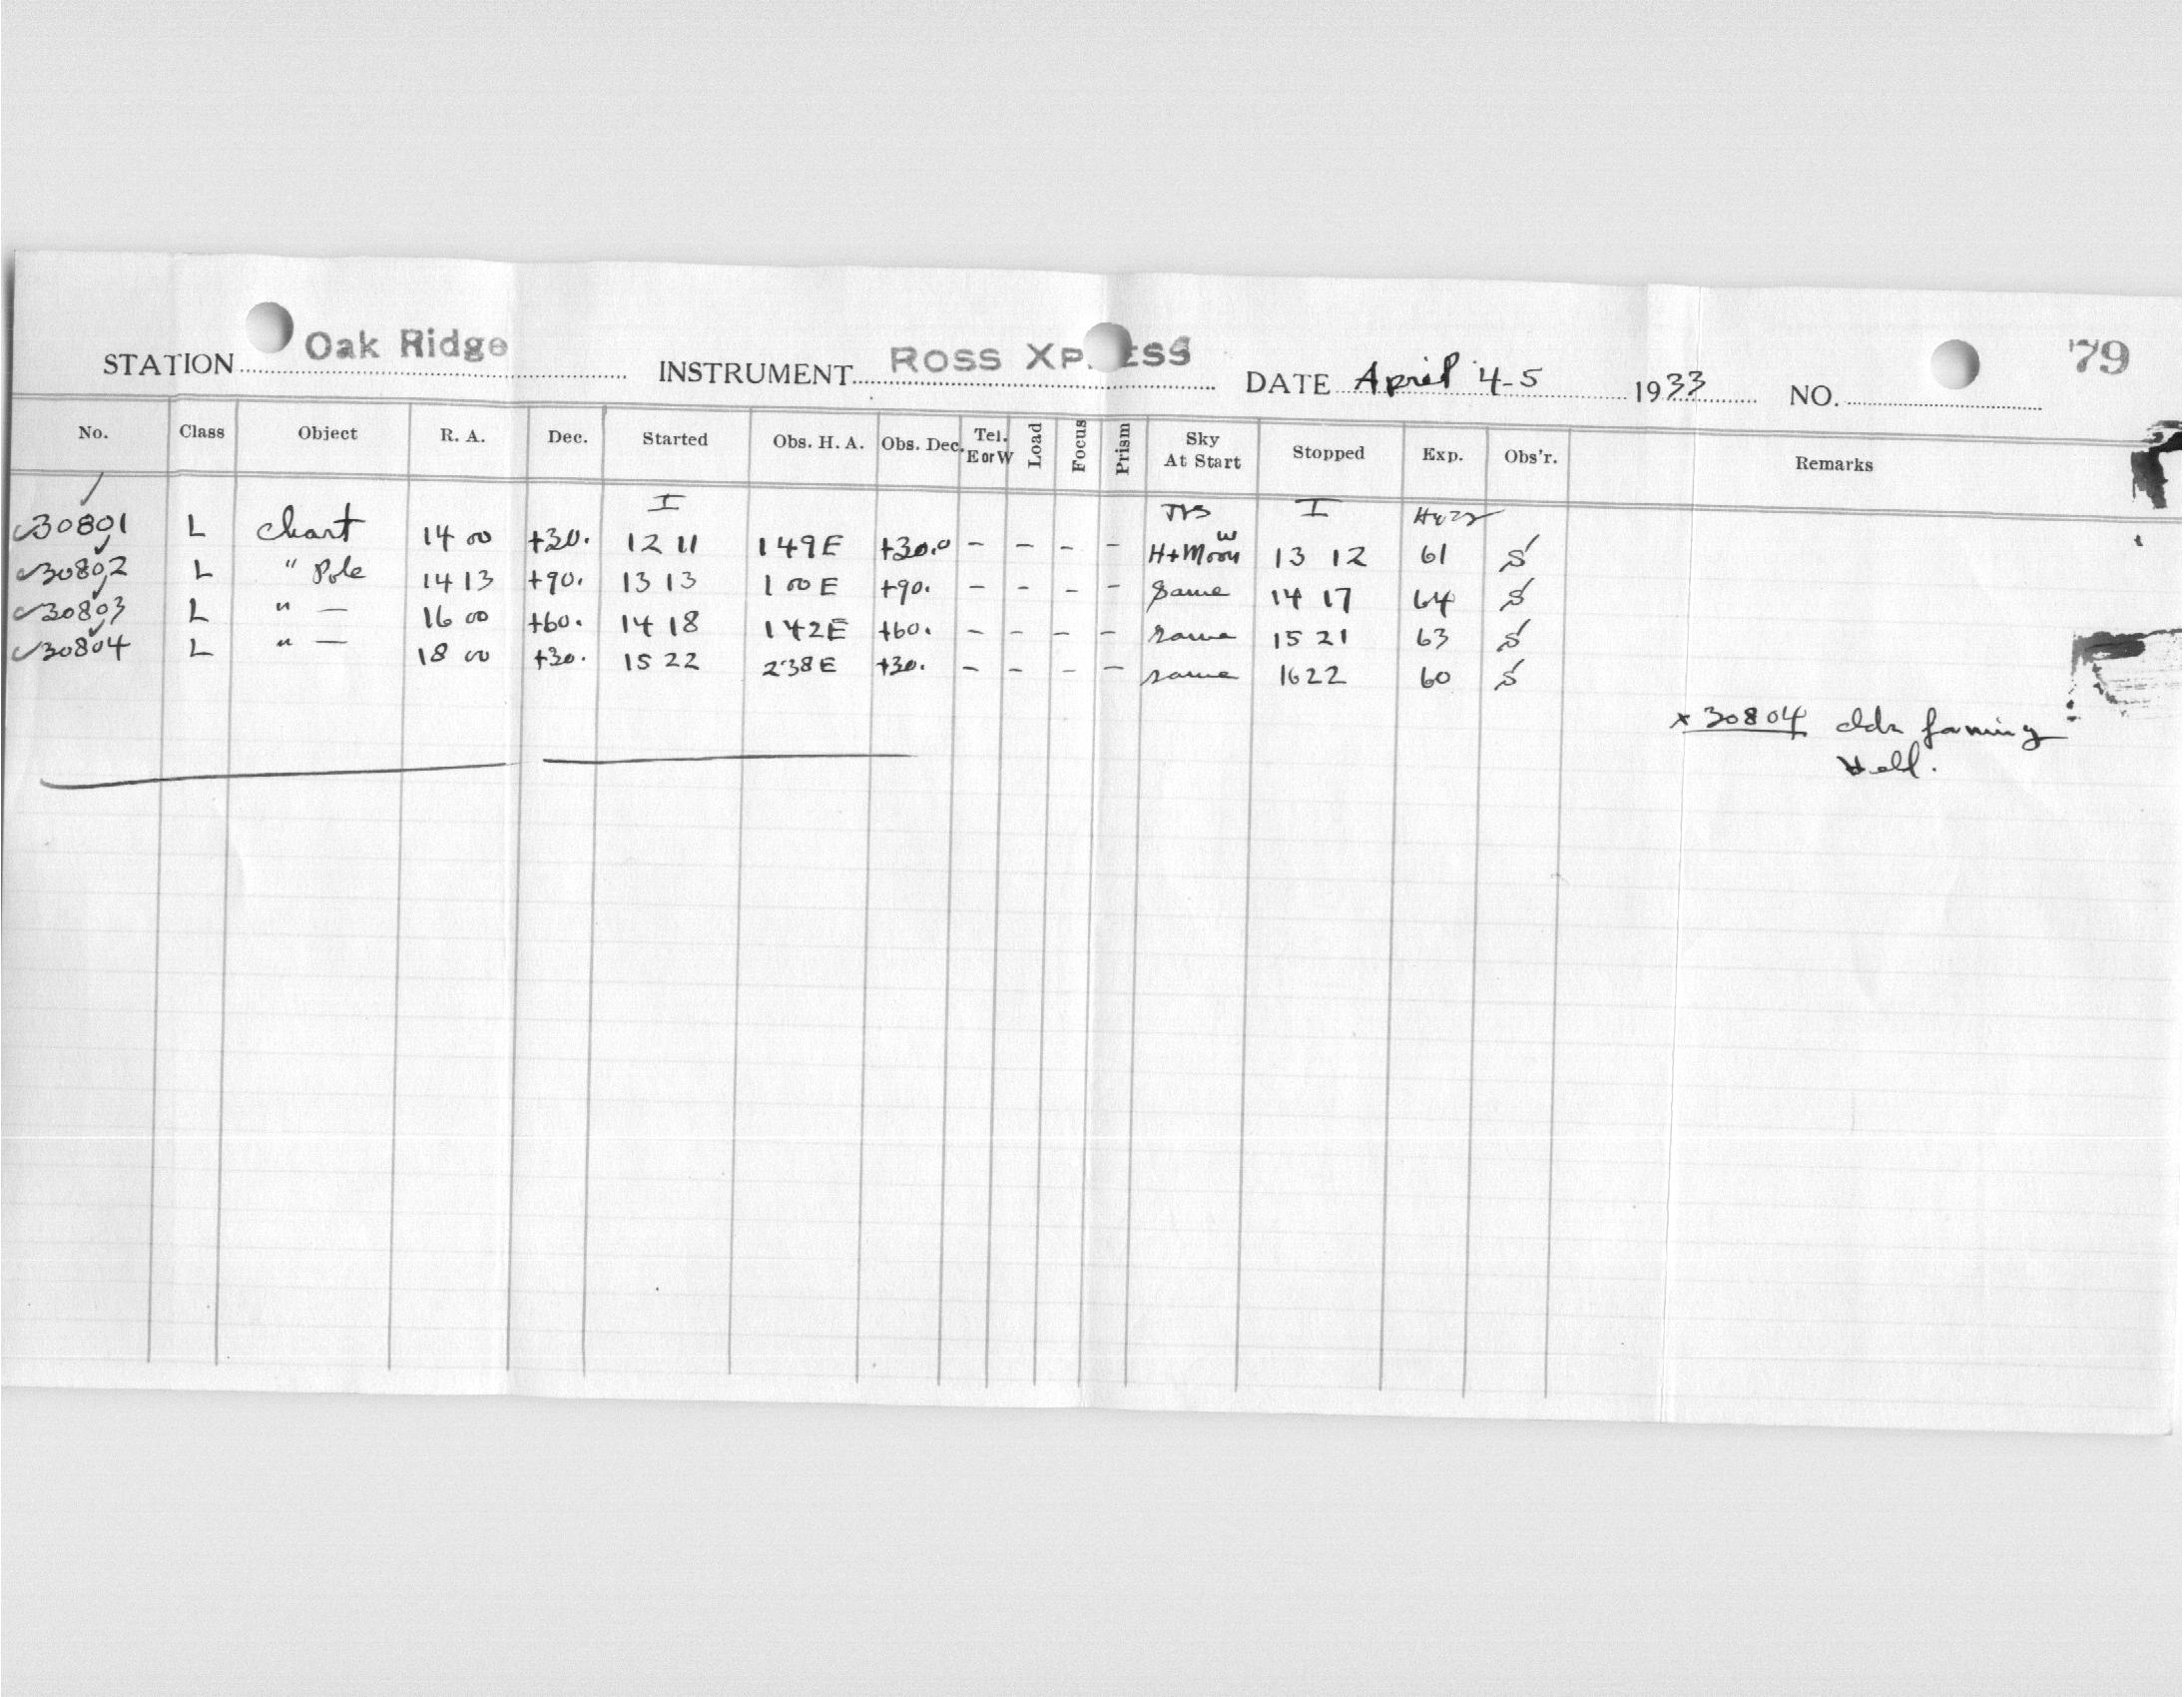 STATION Oak Ridge INSTRUMENT ROSS XP ESS DATE April 4-5 1933 NO. 79
No. Class Object R. A. Dec. Started Obs. H. A. Obs. Dec. Tel. E or W Load Focus Prism Sky At Start Stopped Exp. Obs'r. Remarks
I I
30801 L Chart 14 00 +30. 12 11 1 49 E +30.0 - - - - H+Moon W 13 12 61 S
30802 L " Pole 14 13 +90. 13 13 1 00 E +90. - - - - Same 14 17 64 S
30803 L " — 16 00 +60. 14 18 1 42 E +60. - - - - same 15 21 63 S
30804 L " — 18 00 +30. 15 22 2 38 E +30. - - - - same 16 22 60 S
x 30804